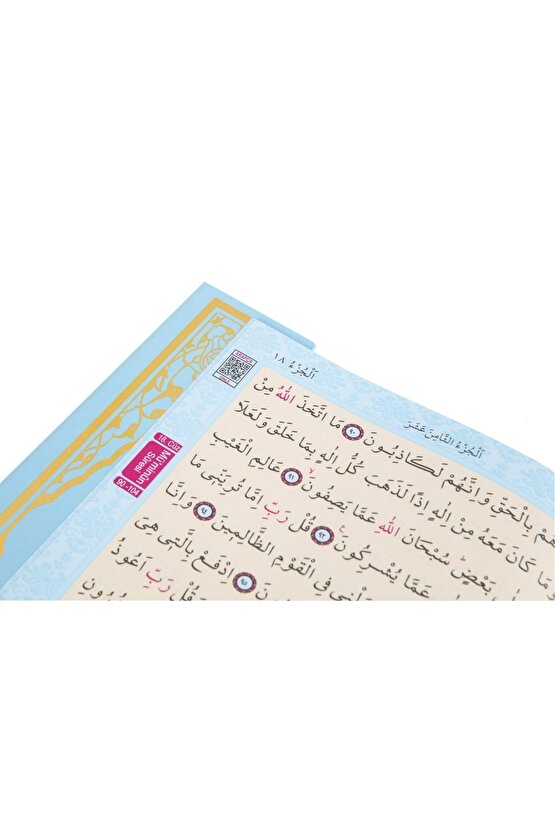 اَلْجُزْءُ ١٨
اَلْجُزْءُ الثَّامِنَ عَشَرَ
18. Cüz
Mü'minûn
Sûresi
90 -104
بِالْحَقِّ وَاِنَّهُمْ لَكَاذِبُونَ ٩٠ مَا اتَّخَذَ اللّٰهُ مِنْ
مَا كَانَ مَعَهُ مِنْ اِلٰهٍ اِذًا لَذَهَبَ كُلُّ اِلٰهٍ بِمَا خَلَقَ وَلَعَلَا
بَعْضٍ سُبْحَانَ اللّٰهِ عَمَّا يَصِفُونَ ٩١ عَالِمِ الْغَيْبِ
عَمَّا يُشْرِكُونَ ٩٢ قُلْ رَبِّ اِمَّا تُرِيَنّ۪ى مَا
فِى الْقَوْمِ الظَّالِم۪ينَ ٩٤ وَاِنَّا
٩٥ اِدْفَعْ بِالَّت۪ى هِىَ
رَبِّ اَعُوذُ